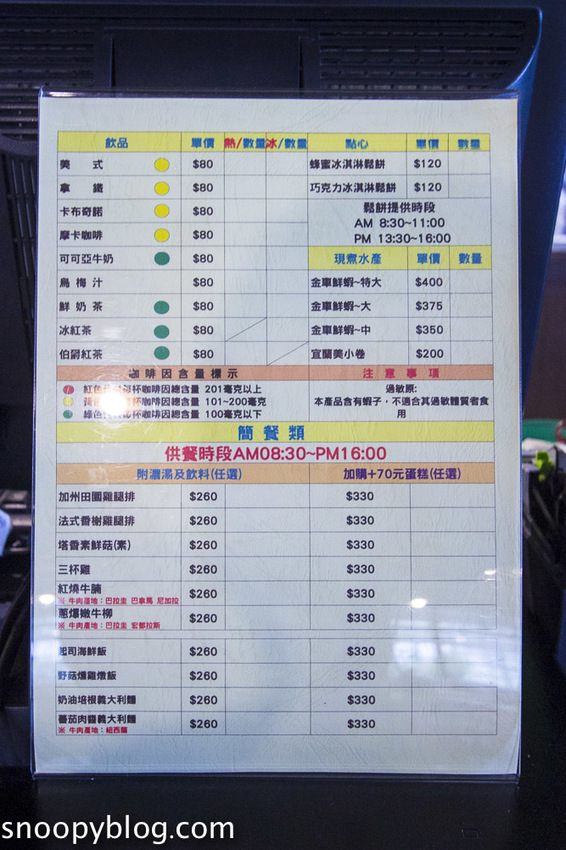 飲品 單價 熱/數量 冰/數量 點心 單價 數量
美 式 $80 蜂蜜冰淇淋鬆餅 $120
拿 鐵 $80 巧克力冰淇淋鬆餅 $120
卡布奇諾 $80 鬆餅提供時段
AM 8:30~11:00
摩卡咖啡 $80 PM 13:30~16:00
可可亞牛奶 $80 現煮水產 單價 數量
烏梅汁 $80 金車鮮蝦~特大 $400
鮮奶茶 $80 金車鮮蝦~大 $375
冰紅茶 $80 金車鮮蝦~中 $350
伯爵紅茶 $80 宜蘭美小卷 $200
咖啡因含量標示 注意事項
紅色 杯咖啡因總含量 201毫克以上 過敏原:
杯咖啡因總含量 101~200毫克 本產品含有蝦子，不適合其過敏體質者食
綠色 杯咖啡因總含量 100毫克以下 用
簡餐類
供餐時段AM08:30~PM16:00
附濃湯及飲料(任選) 加購+70元蛋糕(任選)
加州田園雞腿排 $260 $330
法式香榭雞腿排 $260 $330
塔香素鮮菇(素) $260 $330
三杯雞 $260 $330
紅燒牛腩 $260 $330
※ 牛肉產地：巴拉圭 巴拿馬 尼加拉
蔥爆嫩牛柳 $260 $330
※ 牛肉產地：巴拉圭 宏都拉斯
起司海鮮飯 $260 $330
野菇燻雞燉飯 $260 $330
奶油培根義大利麵 $260 $330
蕃茄肉醬義大利麵 $260 $330
※ 牛肉產地：紐西蘭
snoopyblog.com